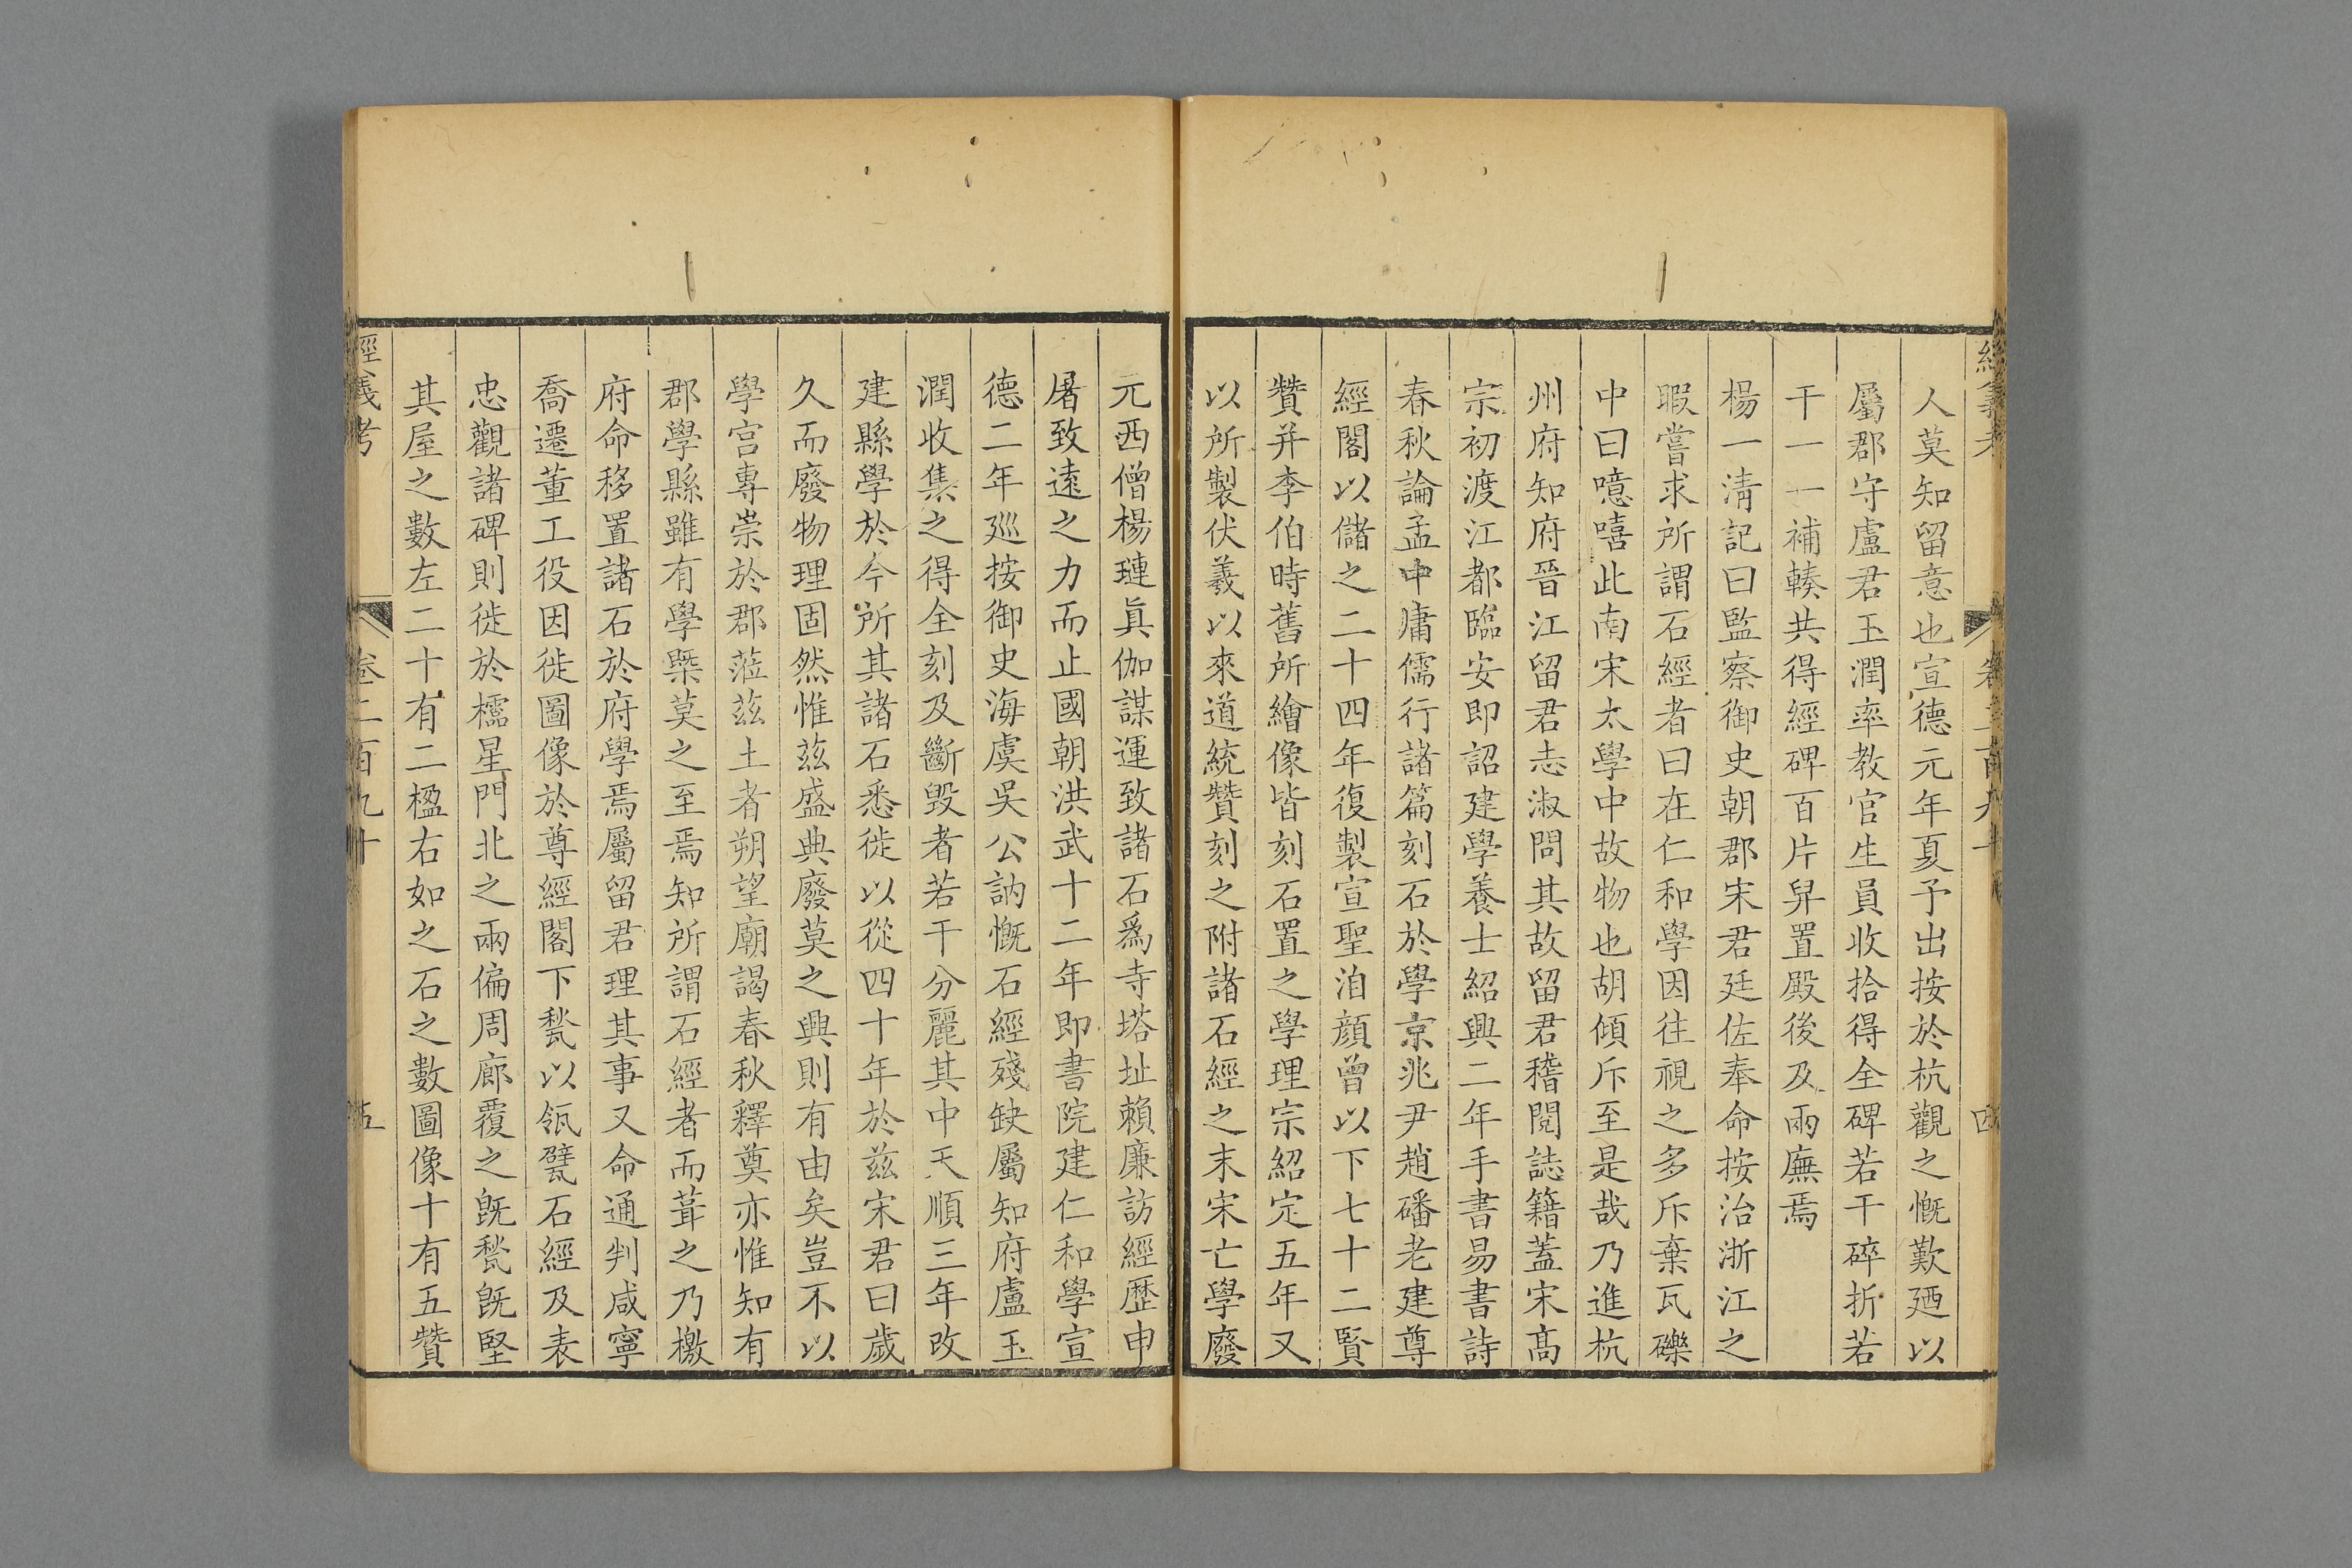 經義考
卷二百九十
四
人莫知留意也宣德元年夏予出按於杭觀之慨歎廼以
屬郡守盧君玉潤率教官生員收拾得全碑若干碎折若
干一一補輳共得經碑百片舁置殿後及兩廡焉
楊一清記曰監察御史朝郡宋君廷佐奉命按治浙江之
暇嘗求所謂石經者曰在仁和學因往視之多斥棄瓦礫
中曰噫嘻此南宋太學中故物也胡傾斥至是哉乃進杭
州府知府晉江留君志淑問其故留君稽閱誌籍蓋宋高
宗初渡江都臨安即詔建學養士紹興二年手書易書詩
春秋論孟中庸儒行諸篇刻石於學京兆尹趙磻老建尊
經閣以儲之二十四年復製宣聖洎顔曾以下七十二賢
贊并李伯時舊所繪像皆刻石置之學理宗紹定五年又
以所製伏羲以來道統贊刻之附諸石經之末宋亡學廢
元西僧楊璉眞伽謀運致諸石爲寺塔址賴廉訪經歷申
屠致遠之力而止國朝洪武十二年即書院建仁和學宣
德二年廵按御史海虞吳公訥慨石經殘缺屬知府盧玉
潤收集之得全刻及斷毁者若干分麗其中天順三年改
建縣學於今所其諸石悉徙以從四十年於兹宋君曰歲
久而廢物理固然惟兹盛典廢莫之興則有由矣豈不以
學宮專崇於郡蒞兹土者朔望廟謁春秋釋奠亦惟知有
郡學縣雖有學槩莫之至焉知所謂石經者而葺之乃檄
府命移置諸石於府學焉屬留君理其事又命通判咸寧
喬遷董工役因徙圖像於尊經閣下甃以瓴甓石經及表
忠觀諸碑則徙於櫺星門北之兩偏周廊覆之旣甃旣堅
其屋之數左二十有二楹右如之石之數圖像十有五贊
經義考
卷二百九十
五